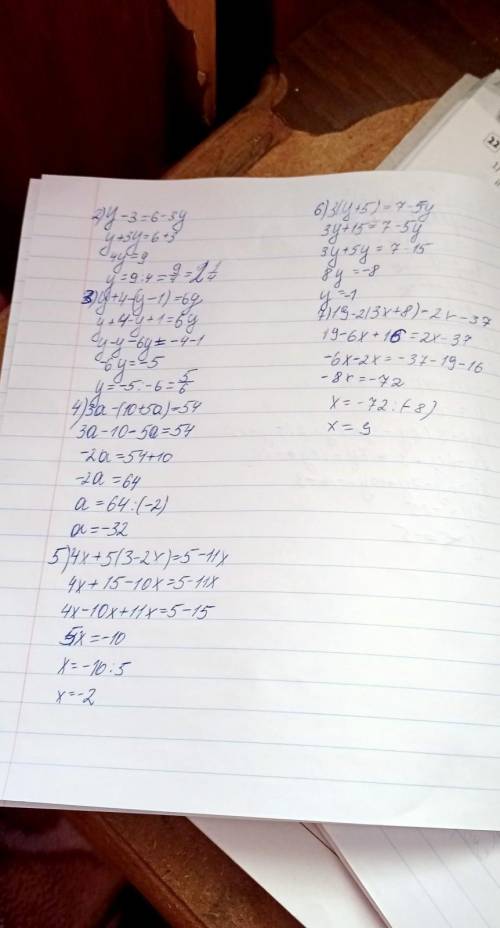 2) y-3=6-3y
y+3y=6+3
4y=9
y=9:4=9/4=2 1/4
3) (y+4-(y-1)=6y
y+4-y+1=6y
y-y-6y=-4-1
-6y=-5
y=-5:-6=5/6
4) 3a-(10+5a)=54
3a-10-5a=54
-2a=54+10
-2a=64
a=64:(-2)
a=-32
5) 4x+5(3-2x)=5-11x
4x+15-10x=5-11x
4x-10x+11x=5-15
5x=-10
x=-10:5
x=-2
6) 3(y+5)=7-5y
3y+15=7-5y
3y+5y=7-15
8y=-8
y=-1
7) 19-2(3x+8)=2x-37
19-6x+16=2x-37
-6x-2x=-37-19-16
-8x=-72
x=-72:(-8)
x=9
22